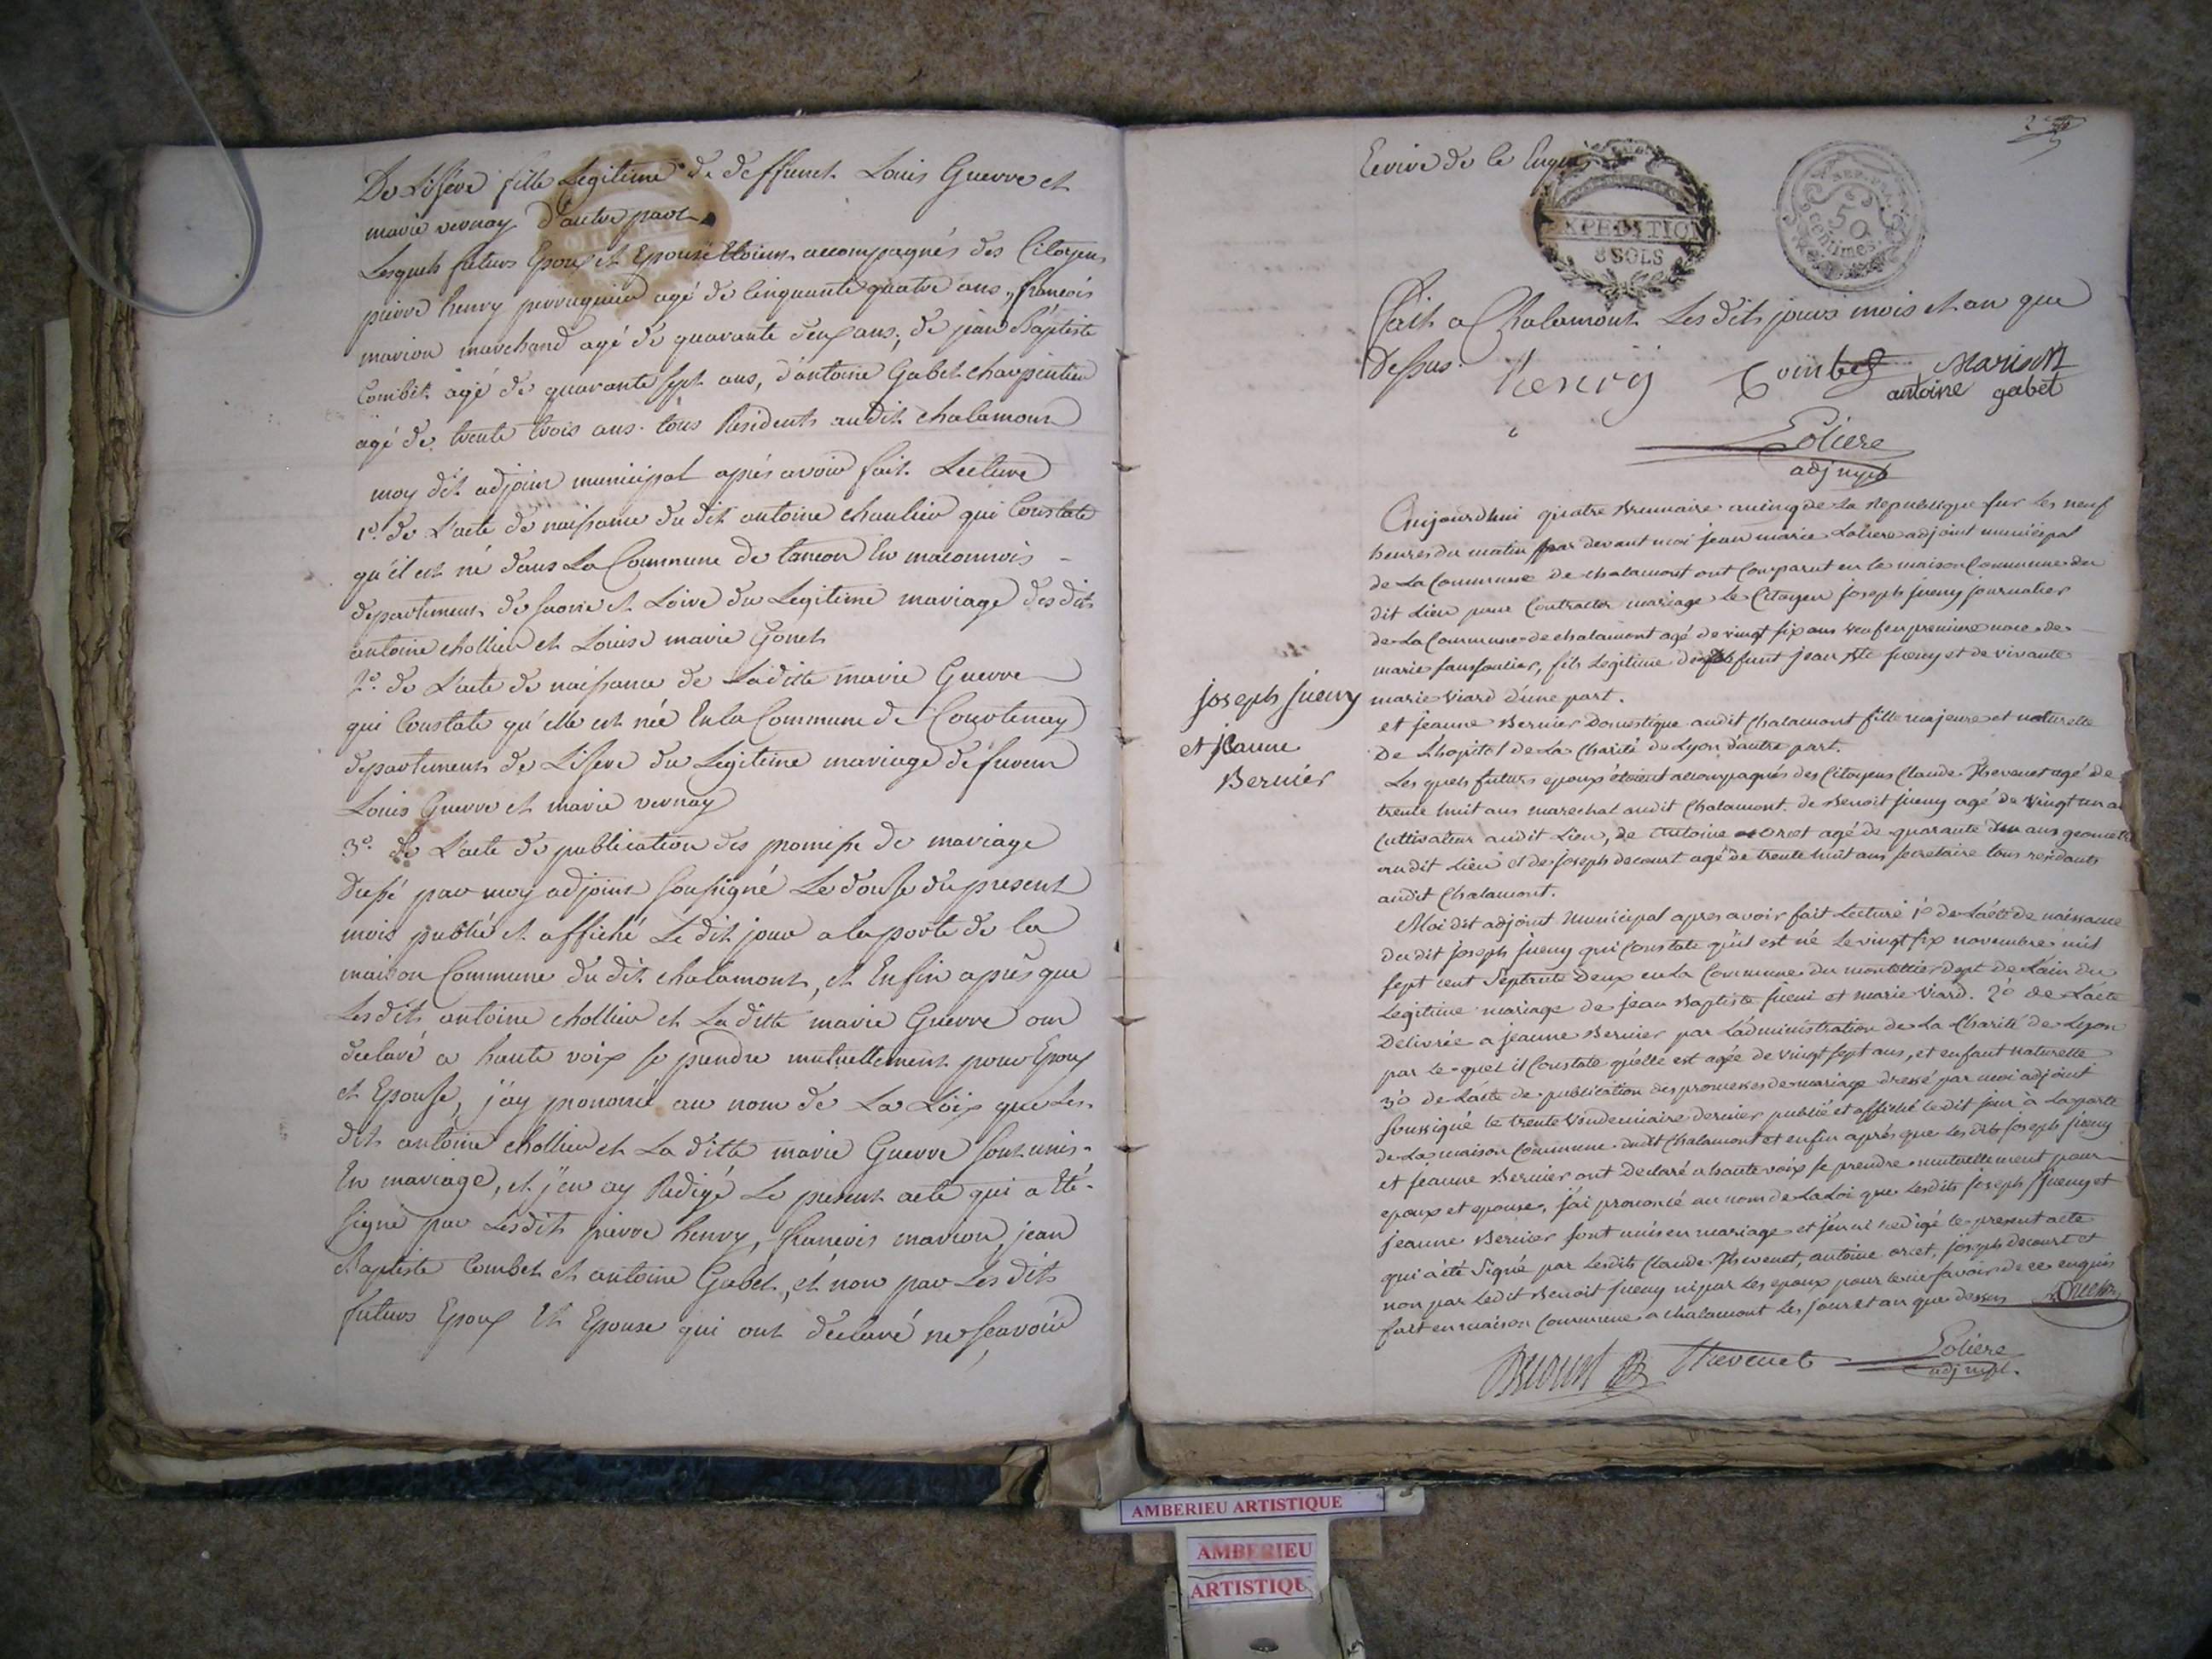 De Lisere fille Legitime de deffunct Louis Guerre et
marie vernay d'autre part
Lesquels futurs Epoux et Epouse Etoient accompagnés des Citoyens
pierre henry perruquier agé de Cinquante quatre ans, francois
marion marchand agé de quarante deux ans, de jean Baptiste
Combet agé de quarante sept ans, d'antoine Gabet charpentier
agé de trente trois ans. tous Residents audit chalamont
moy dit adjoint municipal après avoir fait Lecture
1°. de L'acte de naissance du dit antoine chaulier qui Constate
qu'il est né dans La Commune de tancon En maconnois
departement de saone et Loire du Legitime mariage desdits
antoine chollier et Louise marie Gonet
2°. de L'acte de naissance de Laditte marie Guerre
qui Constate qu'elle est née En la Commune de Courtenay
departement de Lisere du Legitime mariage de
Louis Guerre et marie vernay
3°. de L'acte de publication des promesse de mariage
dressé par moy adjoint soussigné Le douse du present
mois publié et affiché Le dit jour a la porte de la
maison Commune du dit chalamont, et Enfin après que
Lesdits antoine chollier et La ditte marie Guerre ont
declaré a haute voix se prendre mutuellement pour Epoux
et Epouse, j'ay prononcé au nom de La Loix que Les
dits antoine chollier et La ditte marie Guerre sont unis
En mariage, et j'en ay Redigé Le present acte qui a Eté
signé par Lesdits pierre henry, francois marion, jean
Baptiste Combet et antoine Gabet, et non par Les dits
futurs Epoux Et Epouse qui ont declaré ne sçavoir
Ecrire de ce Enquis
EXPEDITION
8 SOLS
REP. FRA.
50
centimes.
fait a Chalamont Les dits jours mois et an que
dessus. henrÿ Combet Marion
antoine gabet
Loliere
adj mpl
Aujourdhui quatre Brumaire an cinq de La Republique sur Les neuf
heures du matin par devant moi jean marie Loliere adjoint municipal
de La Commune de chalamont ont Comparut en le maison Commune du
dit Lieu pour Contracter mariage Le Citoyen joseph jueny journalier
de La Commune de chalamont agé de vingt six ans veuf en premiere noce de
marie , fils Legitime de funt jean Bte jueny et de vivante
marie Viard d'une part.
joseph jueny
et jeanne
Bernier
et jeanne Bernier Domestique audit Chalamont fille majeure et naturelle
De L'hopital de La Charité de Lyon d'autre part.
Les quels futurs epoux étoient accompagnés des Citoyens Claude Thevenet agé de
trente huit ans marechal audit Chalamont. de Benoit jueny agé de vingt un a
Cultivateur audit Lieu, de antoine orcet agé de quarante ans geometre
audit Lieu et de joseph decourt agé de trente huit ans secretaire tous residants
audit Chalamont.
Moi dit adjoint municipal apres avoir fait Lecture 1° de L'acte de naissance
du dit joseph jueny qui Constate qu'il est né le vingt six novembre mil
sept cent septante deux en La Commune du montellier dept de L'ain du
Legitime mariage de jean Baptiste jueni et marie Viard. 2° de L'acte
Delivrée a jeanne Bernier par L'administration de La Charité de Lyon
par le quel il Constate qu'elle est agée de vingt sept ans, et enfant naturelle
3° de L'acte de publication des promesses de mariage dressé par moi adjoint
soussigné le trente Vendemiaire dernier publié et affiché le dit jour à La porte
de La maison Commune dudit Chalamont et enfin après que Les dits joseph jueny
et jeanne Bernier ont Declaré a haute voix se prendre mutuellement pour
epoux et epouse, j'ai prononcé au nom de La Loi que Lesdits joseph jueny et
jeanne Bernier sont unis en mariage et j'en ai redigé le present acte
qui a été signé par Lesdits Claude Thevenet, antoine orcet, joseph decourt et
non par Ledit Benoit jueny ni par Les epoux pour ne savoir de ce enquis
fait en maison Commune a chalamont Les jour et an que dessus
Decourt Thevenet Loliere
adj mpl.
AMBERIEU ARTISTIQUE
AMBERIEU
ARTISTIQU